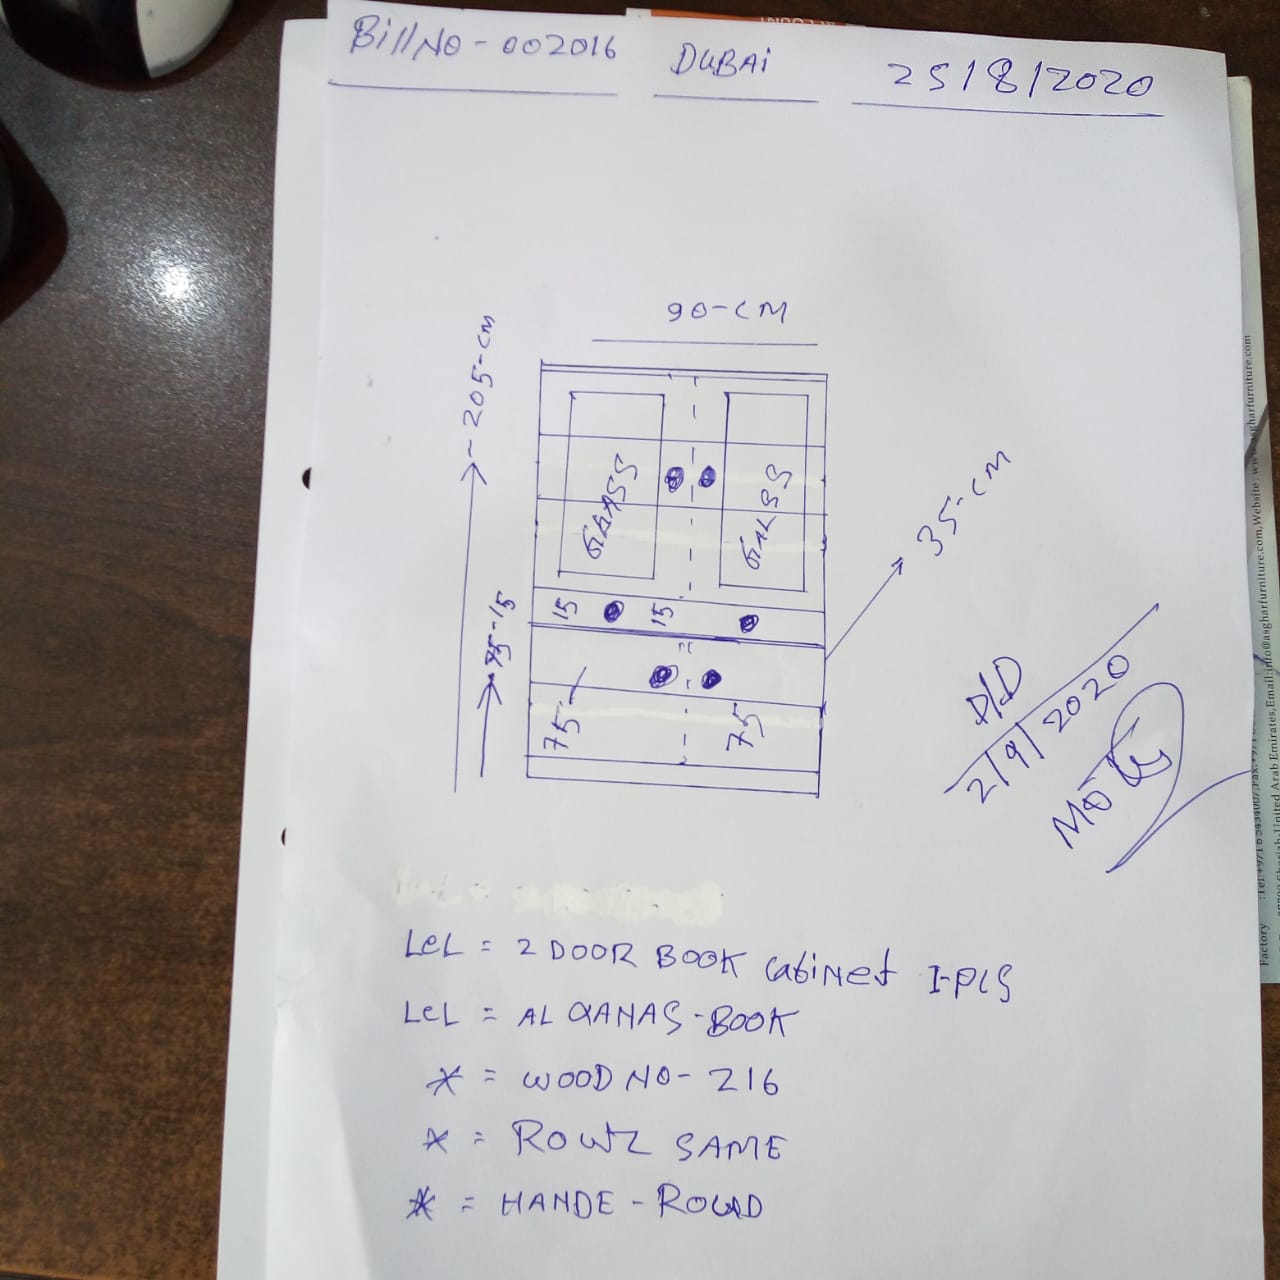 BillNO - 002016 DUBAi 25/8/2020
90-CM
205-CM
GLASS
GALSS
35-CM
15
15
75-15
75
75
D/D
2/9/2020
LeL = 2 DOOR BOOK CabiNet 1-PCS
LeL = AL QANAS-BOOK
* = WOOD NO- 216
* = ROWZ SAME
* = HANDE - ROUD
Factory :Tel:+971 6 5434007,Fax:+971
United Arab Emirates,Email:info@asgharfurniture.com,Website : www.asgharfurniture.com